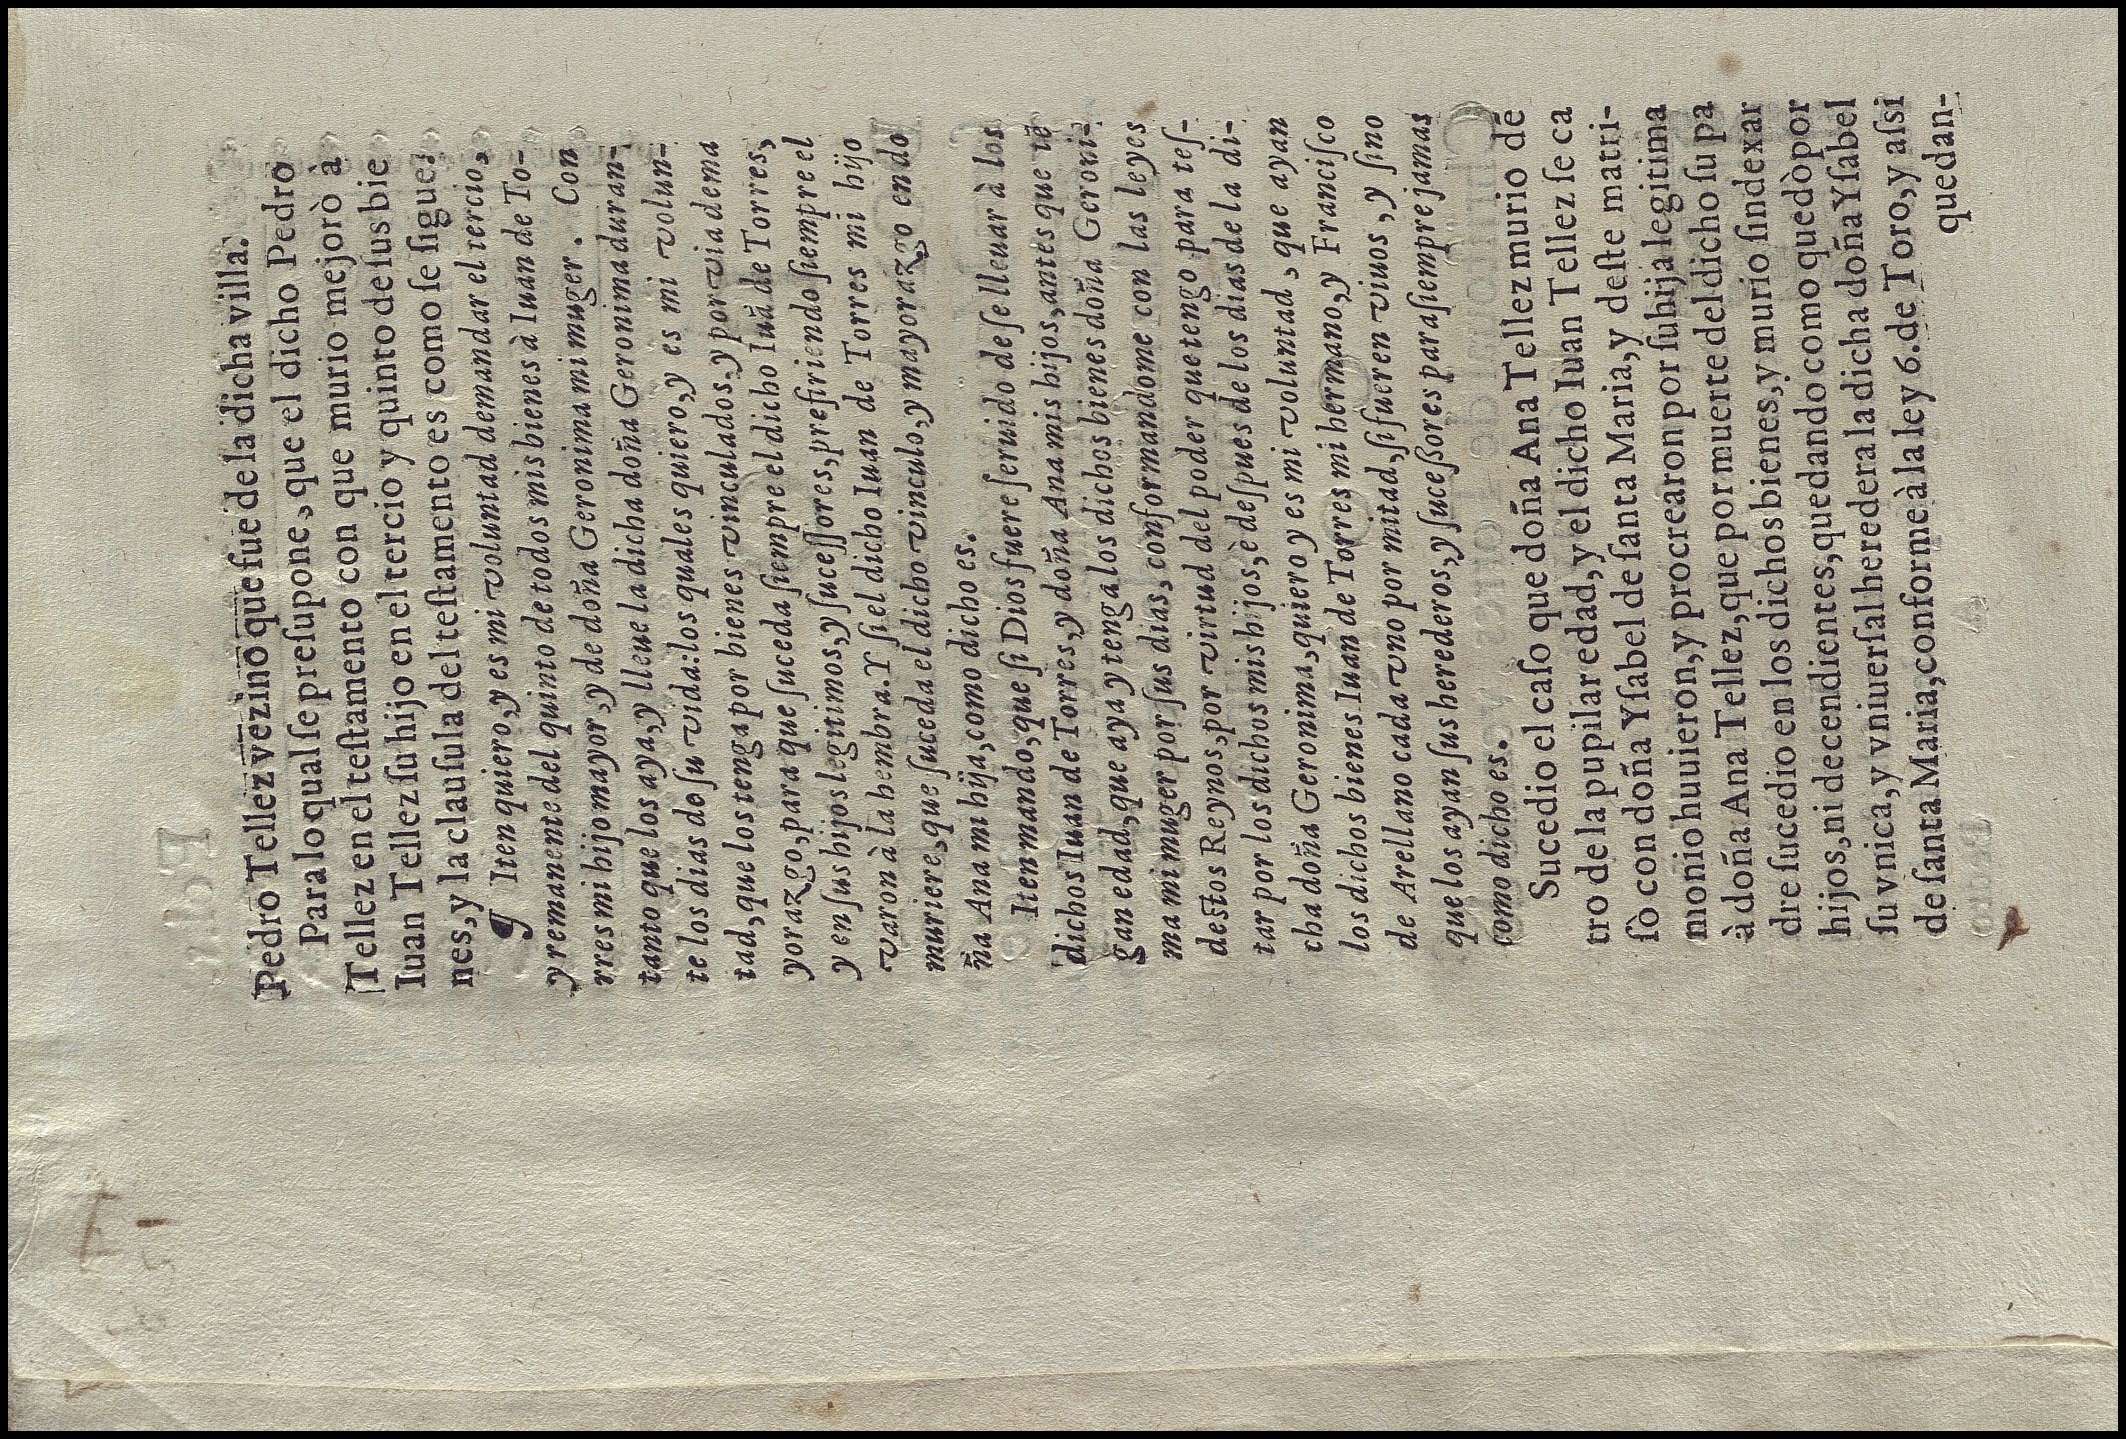 Pedro Tellez vezino que fue de la dicha villa.
Para lo qual se presupone, que el dicho Pedro
Tellez en el testamento con que murio mejorò à
Iuan Tellez su hijo en el tercio y quinto de sus bie
nes, y la clausula del testamento es como se sigue.
¶ Iten quiero, y es mi voluntad de mandar el tercio,
y remanente del quinto de todos mis bienes à Iuan de To-
rres mi hijo mayor, y de doña Geronima mi muger. Con
tanto que los aya, y lleue la dicha doña Geronima duran-
te los dias de su vida: los quales quiero, y es mi volun-
tad, que los tenga por bienes vinculados, y por via de ma
yorazgo, para que suceda siempre el dicho Iuã de Torres,
y en sus hijos legitimos, y sucessores, prefiriendo siempre el
varon à la hembra. Y si el dicho Iuan de Torres mi hijo
muriere, que suceda el dicho vinculo, y mayorazgo en do
ña Ana mi hija, como dicho es.
Iten mando, que si Dios fuere seruido de se lleuar à los
dichos Iuan de Torres, y doña Ana mis hijos, antes que tẽ
gan edad, que aya y tenga los dichos bienes doña Geroni-
ma mi muger por sus dias, conformandome con las leyes
destos Reynos, por virtud del poder que tengo para tes-
tar por los dichos mis hijos, è despues de los dias de la di-
cha doña Geronima, quiero y es mi voluntad, que ayan
los dichos bienes Iuan de Torres mi hermano, y Francisco
de Arellano cada vno por mitad, si fueren viuos, y sino
que los ayan sus herederos, y sucessores para siempre jamas
como dicho es.
Sucedio el caso que doña Ana Tellez murio dẽ
tro de la pupilar edad, y el dicho Iuan Tellez se ca
sò con doña Ysabel de santa Maria, y deste matri-
monio huuieron, y procrearon por su hija legitima
à doña Ana Tellez, que por muerte del dicho su pa
dre sucedio en los dichos bienes, y murio sin dexar
hijos, ni decendientes, quedando como quedò por
su vnica, y vniuersal heredera la dicha doña Ysabel
de santa Maria, conforme à la ley 6. de Toro, y assi
quedan-